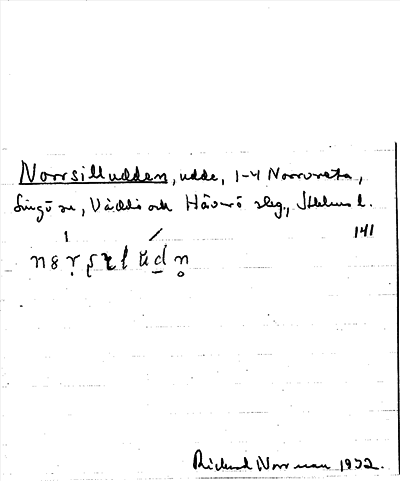 Norrsilludden, udde, 1-4 Norrvreta,
Singö sn, Väddö och Häverö slg, Sthlms l.
141
Rickard Norrman 1932.